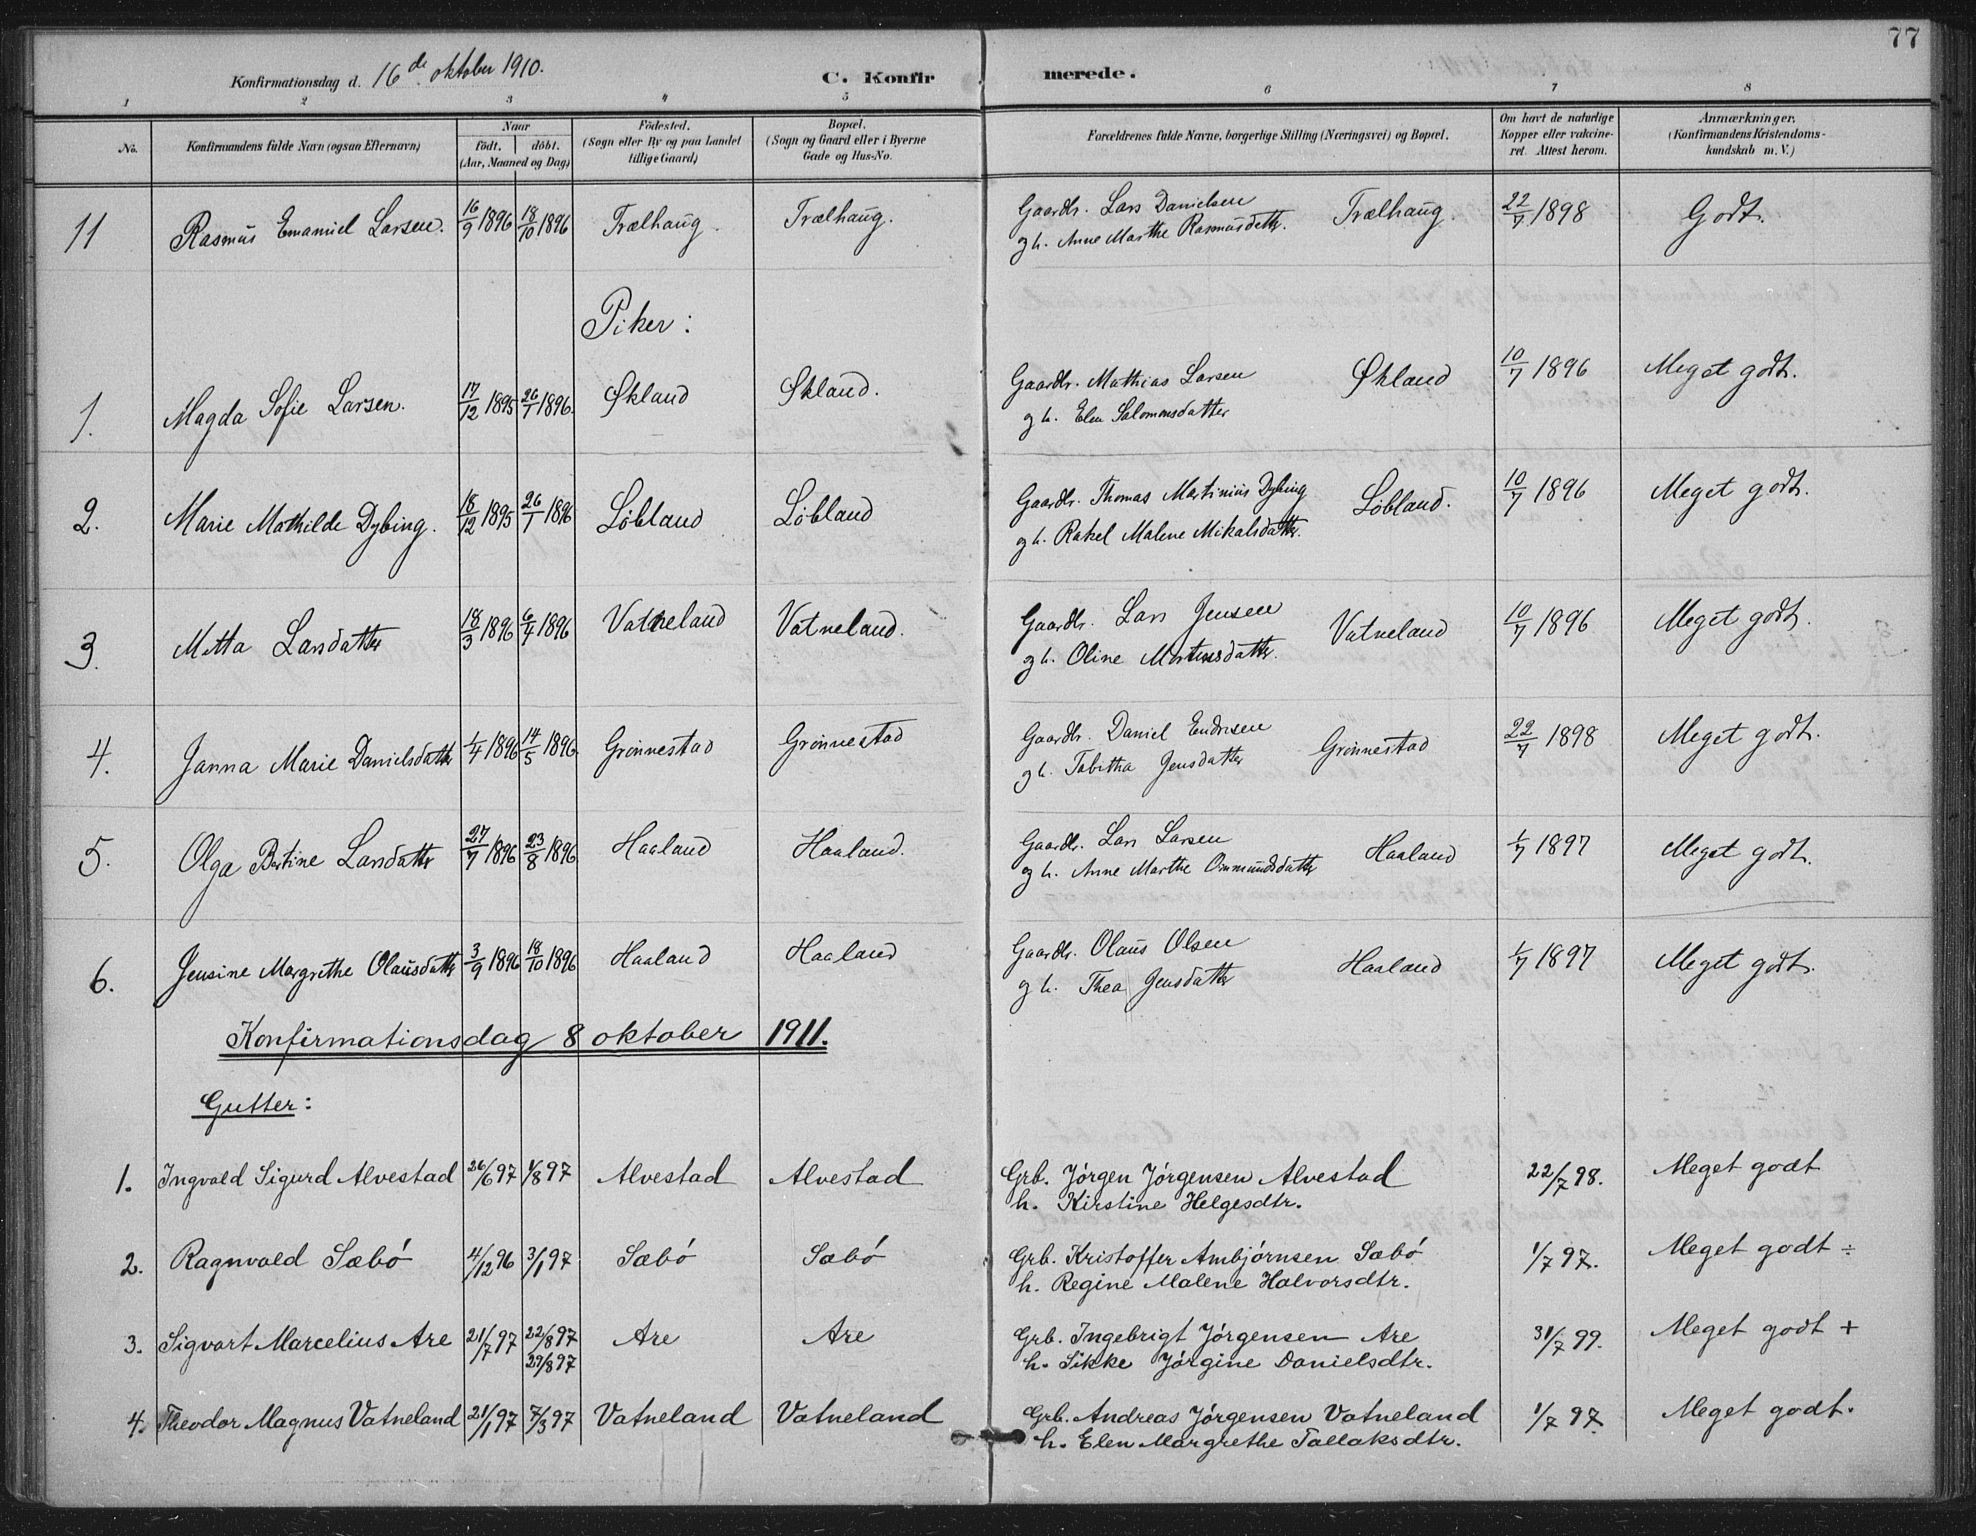 77
Konfirmationsdag d. 16de oktober 1910.
C. Konfirmerede.
1 2 3 4 5 6 7 8
No.
Konfirmandens fulde Navn (ogsaa Efternavn)
Naar
födt. döbt.
(Aar, Maaned og Dag)
Födested.
(Sogn eller By og paa Landet
tillige Gaard)
Bopæl.
(Sogn og Gaard eller i Byerne
Gade og Hus-No.
Forældrenes fulde Navne, borgerlige Stilling (Næringsvei) og Bopæl.
Om havt de naturlige
Kopper eller vakcine-
ret. Attest herom.
Anmærkninger.
(Konfirmandens Kristendoms-
kundskab m. V.)
11 Rasmus Emanuel Larsen. 16/9 1896 18/10 1896 Trælhaug. Trælhaug. Gaardbr. Lars Danielsen Trælhaug. 22/7 1898 Godt.
og h. Anne Marthe Rasmusdatter.
Piker:
1. Magda Sofie Larsen. 17/12 1895 26/1 1896. Økland Økland. Gaardbr. Mathias Larsen Økland 10/7 1896 Meget godt.
og h. Elen Salomonsdatter
2. Marie Mathilde Dybing. 18/12 1895 26/1 1896 Løbland Løbland Gaardbr. Thomas Martinius Dybing Løbland. 10/7 1896 Meget godt.
og h. Rakel Malene Mikalsdatter.
3. Metta Larsdatter 18/3 1896 6/4 1896 Vatneland Vatneland. Gaardbr. Lars Jensen Vatneland 10/7 1896 Meget godt.
og h. Oline Mortensdatter.
4. Janna Marie Danielsdatter 1/4 1896 14/5 1896 Grönnestad Grönnestad Gaardbr. Daniel Endresen Grönnestad 22/7 1898 Meget godt.
og h. Tabitha Jensdatter
5. Olga Bertine Larsdatter 27/7 1896 23/8 1896 Haaland Haaland. Gaardbr. Lars Larsen Haaland 1/7 1897 Meget godt.
og h. Anne Marthe Ommundsdatter
6. Jensine Margrethe Olausdatter 3/9 1896 18/10 1896 Haaland Haaland Gaardbr. Olaus Olsen Haaland 1/7 1897 Meget godt.
og h. Thea Jensdatter
Konfirmationsdag 8 oktober 1911.
Gutter:
1. Ingvald Sigurd Alvestad 26/6 97 1/8 97 Alvestad Alvestad Grb. Jörgen Jörgensen Alvestad 22/7 98. Meget godt
h. Kirstine Helgesdtr.
2. Ragnvald Sæbö 4/12 96 3/1 97 Sæbö Sæbö Grb. Kristoffer Ambjörnsen Sæbö 1/7 97. Meget godt ÷
h. Regine Malene Halvorsdtr.
3. Sigvart Marcelius Are 21/7 97 22/8 97 Are Are Grb. Ingebrigt Jörgensen Are 31/7 99. Meget godt +
29/8 97 h. Sikke Jörgine Danielsdtr.
4. Theodor Magnus Vatneland 21/1 97 7/3 97 Vatneland Vatneland Grb. Andreas Jörgensen Vatneland 1/7 97. Meget godt.
h. Elen Margrethe Tallaksdtr.